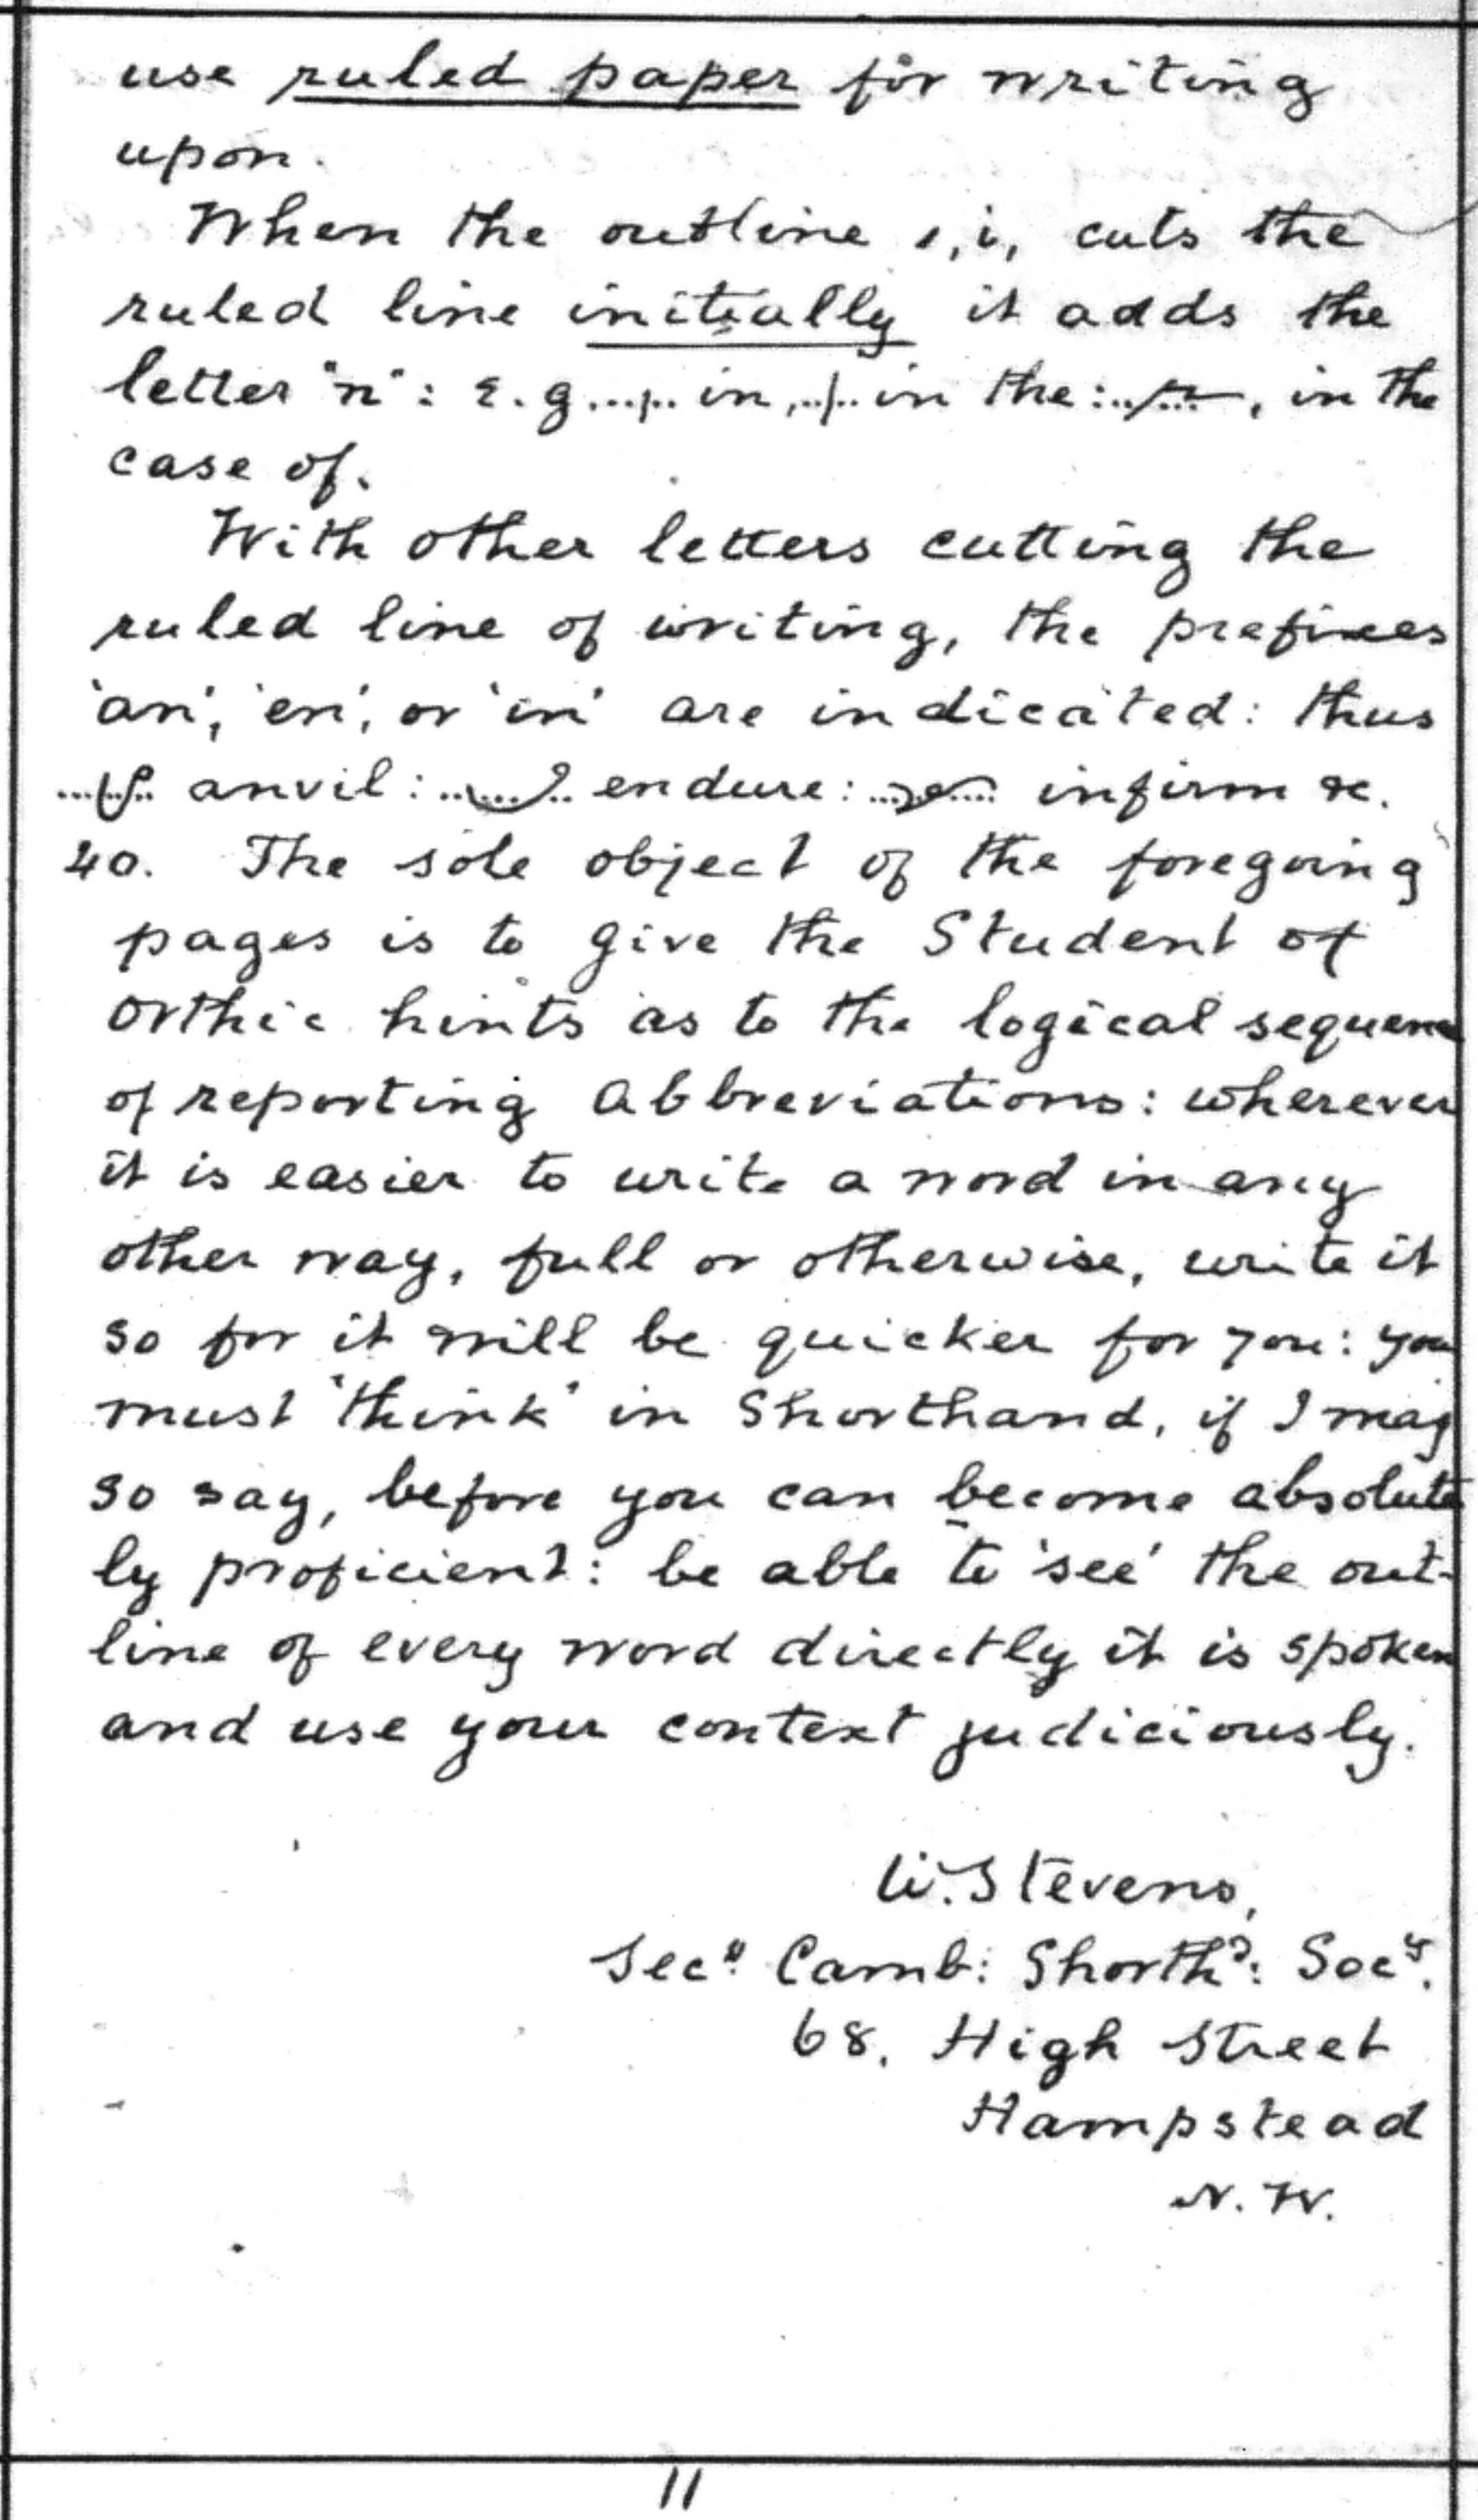 use ruled paper for writing
upon.
When the outline ı, i, cuts the
ruled line initially it adds the
letter "n": E.g. in, in the: , in the
case of.
With other letters cutting the
ruled line of writing, the prefixes
'an', 'en', or 'in' are indicated: thus
anvil: endure: infirm &c.
40. The sole object of the foregoing
pages is to give the Student of
Orthic hints as to the logical sequence
of reporting Abbreviations: wherever
it is easier to write a word in any
other way, full or otherwise, write it
so for it will be quicker for you: you
must 'think' in Shorthand, if I may
so say, before you can become absolute
ly proficient: be able to 'see' the out-
line of every word directly it is spoken
and use your context judiciously.
W. Stevens,
Secy. Camb: Shorthd: Socy.
68, High Street
Hampstead
N. W.
11